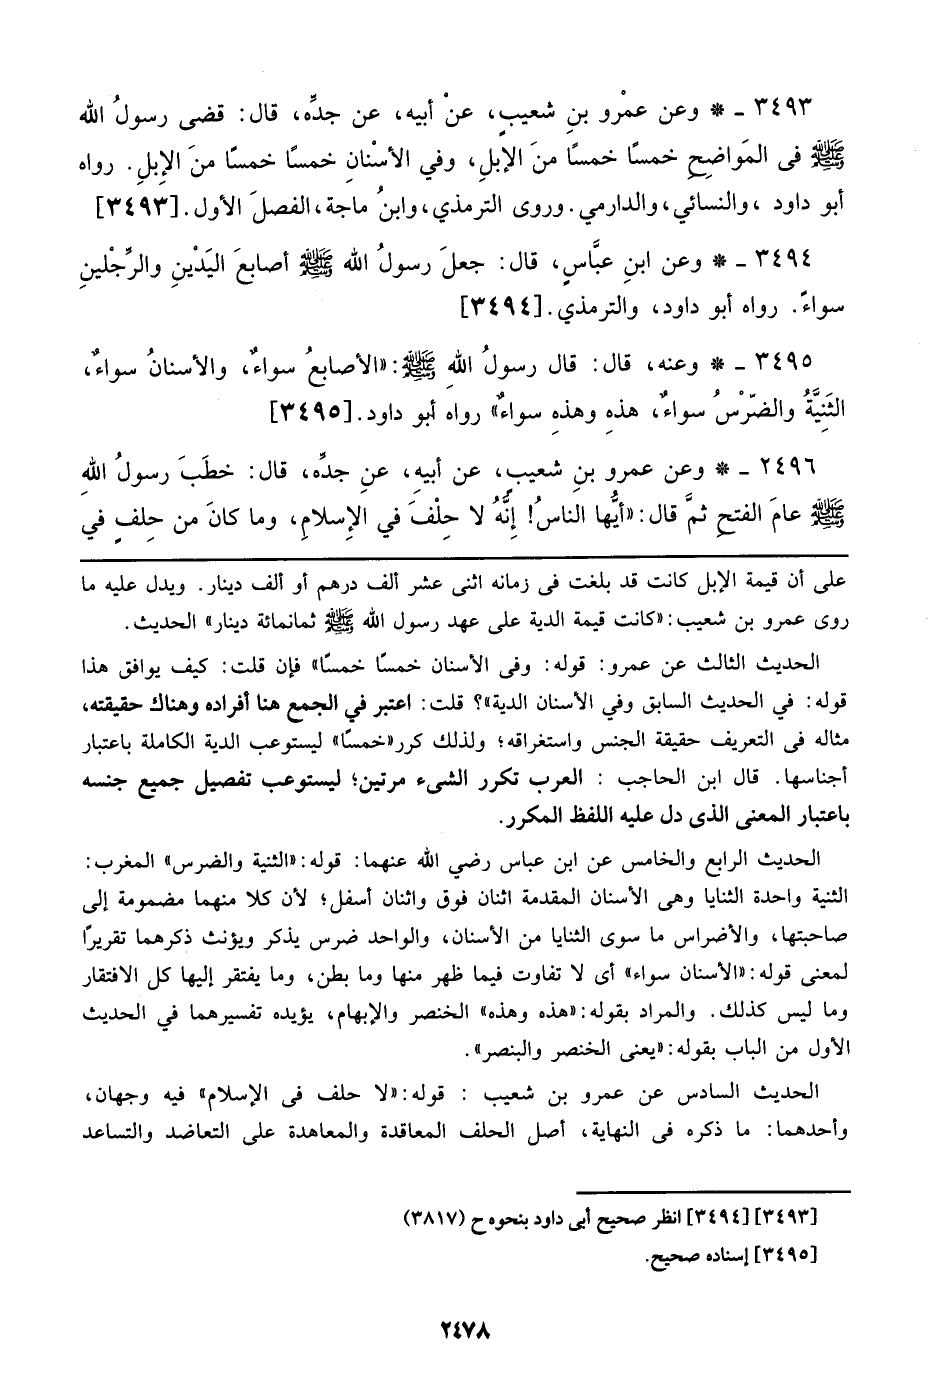 ٣٤٩٣ ـ * وعن عمْرو بنِ شعيبٍ، عنْ أبيه، عن جدِّه، قال: قضى رسولُ الله
ﷺ فى المَواضِحِ خمسًا خمسًا منَ الإبلِ، وفي الأسْنانِ خمسًا خمسًا منَ الإِبلِ. رواه
أبو داود ، والنسائي، والدارمي. وروى الترمذي، وابنُ ماجة، الفصلَ الأول. [٣٤٩٣]
٣٤٩٤ ـ * وعن ابنِ عبَّاسٍ، قال: جعلَ رسولُ الله ﷺ أصابعَ اليَدْينِ والرِّجْلينِ
سواءً. رواه أبو داود، والترمذي. [٣٤٩٤]
٣٤٩٥ ـ * وعنه، قال: قال رسولُ اللهِ ﷺ: «الأصابعُ سواءٌ، والأسنانُ سواءٌ،
الثَنِيَّةُ والضّرْسُ سواءٌ، هذهِ وهذهِ سواءٌ» رواه أبو داود. [٣٤٩٥]
٢٤٩٦ ـ * وعن عمرو بنِ شعيبٍ، عن أبيهِ، عن جدِّه، قال: خطَبَ رسولُ اللهِ
ﷺ عامَ الفتحِ ثمَّ قال: «أيُّها الناسُ! إنَّهُ لا حِلْفَ في الإسلامِ، وما كانَ من حِلفٍ في
على أن قيمة الإبل كانت قد بلغت فى زمانه اثنى عشر ألف درهم أو ألف دينار. ويدل عليه ما
روى عمرو بن شعيب: «كانت قيمة الدية على عهد رسول الله ﷺ ثمانمائة دينار» الحديث.
الحديث الثالث عن عمرو: قوله: وفى الأسنان خمسًا خمسًا» فإن قلت: كيف يوافق هذا
قوله: في الحديث السابق وفي الأسنان الدية»؟ قلت: اعتبر في الجمع هنا أفراده وهناك حقيقته،
مثاله فى التعريف حقيقة الجنس واستغراقه؛ ولذلك كرر «خمسًا» ليستوعب الدية الكاملة باعتبار
أجناسها. قال ابن الحاجب : العرب تكرر الشىء مرتين؛ ليستوعب تفصيل جميع جنسه
باعتبار المعنى الذى دل عليه اللفظ المكرر.
الحديث الرابع والخامس عن ابن عباس رضي الله عنهما: قوله: «الثنية والضرس» المغرب:
الثنية واحدة الثنايا وهى الأسنان المقدمة اثنان فوق واثنان أسفل؛ لأن كلا منهما مضمومة إلى
صاحبتها، والأضراس ما سوى الثنايا من الأسنان، والواحد ضرس يذكر ويؤنث ذكرهما تقريرًا
لمعنى قوله: «الأسنان سواء» أى لا تفاوت فيما ظهر منها وما بطن، وما يفتقر إليها كل الافتقار
وما ليس كذلك. والمراد بقوله: «هذه وهذه» الخنصر والإبهام، يؤيده تفسيرهما في الحديث
الأول من الباب بقوله: «يعنى الخنصر والبنصر».
الحديث السادس عن عمرو بن شعيب : قوله: «لا حلف فى الإسلام» فيه وجهان،
وأحدهما: ما ذكره فى النهاية، أصل الحلف المعاقدة والمعاهدة على التعاضد والتساعد
[٣٤٩٣] [٣٤٩٤] انظر صحيح أبى داود بنحوه ح (٣٨١٧)
[٣٤٩٥] إسناده صحيح.
٢٤٧٨